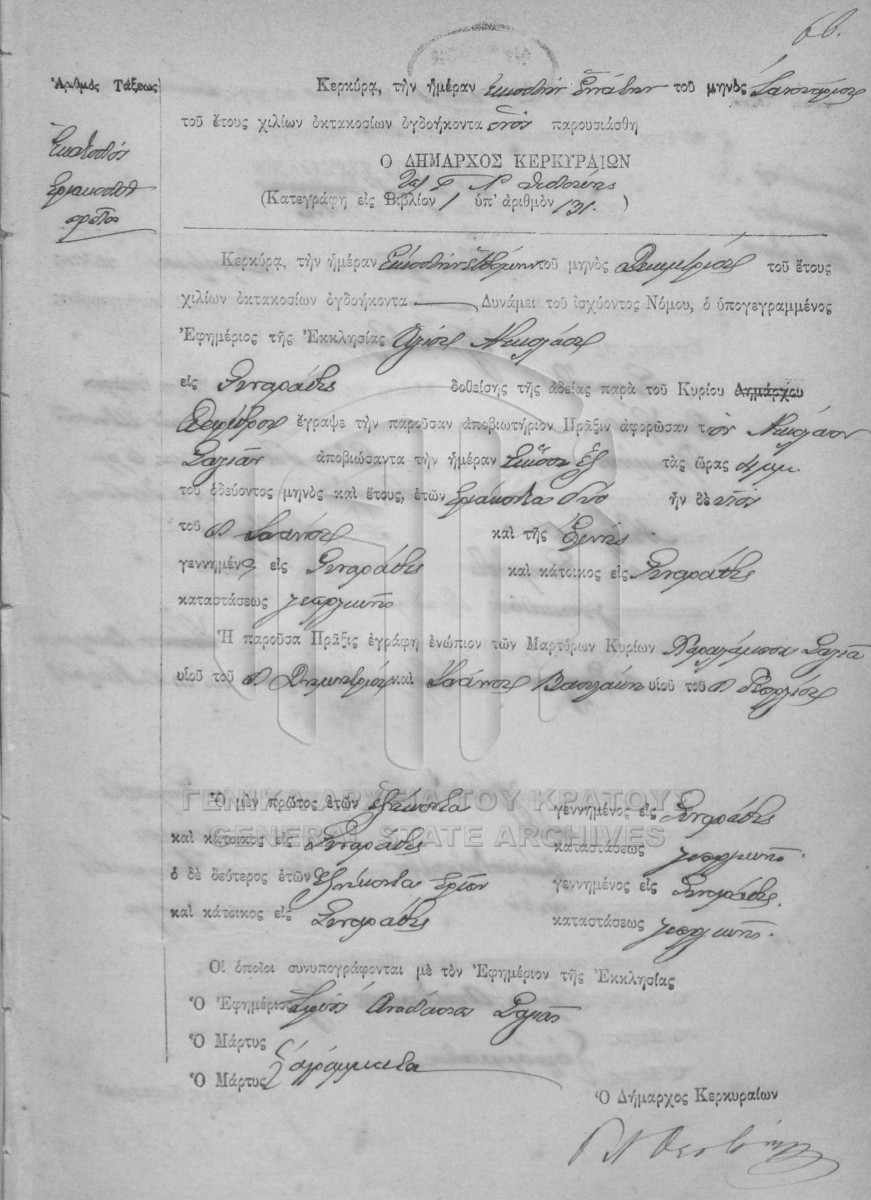 66.
Ἀριθμὸς Τάξεως
Ἑκατοστὸς
Τριακοστὸς
πρῶτος
Κερκύρᾳ, τὴν ἡμέραν εἰκοστὴν ἐννάτην τοῦ μηνὸς Ἰανουαρίου
τοῦ ἔτους χιλίων ὀκτακοσίων ὀγδοήκοντα ἑνὸς παρουσιάσθη
Ο ΔΗΜΑΡΧΟΣ ΚΕΡΚΥΡΑΙΩΝ
(Κατεγράφη εἰς Βιβλίον 1 ὑπ' ἀριθμὸν 131.)
Κερκύρᾳ, τὴν ἡμέραν Εἰκοστὴν ἑβδόμην τοῦ μηνὸς Δεκεμβρίου τοῦ ἔτους
χιλίων ὀκτακοσίων ὀγδοήκοντα — Δυνάμει τοῦ ἰσχύοντος Νόμου, ὁ ὑπογεγραμμένος
Ἐφημέριος τῆς Ἐκκλησίας Ἁγίου Νικολάου
εἰς Συναράδες δοθείσης τῆς ἀδείας παρὰ τοῦ Κυρίου Δημάρχου
Παρέδρου ἔγραψε τὴν παροῦσαν ἀποβιωτήριον Πρᾶξιν ἀφορῶσαν τὸν Νικόλαον
Σαλβᾶν ἀποβιώσαντα τὴν ἡμέραν Εἴκοσι ἓξ τὰς ὥρας 4 μμ.
τοῦ ὁδεύοντος μηνὸς καὶ ἔτους, ἐτῶν τριάκοντα δύο ἦν δὲ υἱὸς
τοῦ Ἰωάννου καὶ τῆς Εἰρήνης
γεννημένος εἰς Συναράδες καὶ κάτοικος εἰς Συναράδες
καταστάσεως γεωργικῆς
Ἡ παροῦσα Πρᾶξις ἐγράφη ἐνώπιον τῶν Μαρτύρων Κυρίων
υἱοῦ τοῦ Δημητρίου καὶ Ἰωάννου Βασιλάκη υἱοῦ τοῦ Γεωργίου
Ὁ μὲν πρῶτος ἐτῶν ἑξήκοντα γεννημένος εἰς Συναράδες
καὶ κάτοικος εἰς Συναράδες καταστάσεως γεωργικῆς.
ὁ δὲ δεύτερος ἐτῶν ἑξήκοντα τριῶν γεννημένος εἰς Συναράδες.
καὶ κάτοικος εἰς Συναράδες καταστάσεως γεωργικῆς.
ΓΕΝΙΚΑ ΑΡΧΕΙΑ ΤΟΥ ΚΡΑΤΟΥΣ
GENERAL STATE ARCHIVES
Οἱ ὁποῖοι συνυπογράφονται μὲ τὸν Ἐφημέριον τῆς Ἐκκλησίας
Ὁ Ἐφημέριος
Ὁ Μάρτυς
ἀγράμματα
Ὁ Μάρτυς
Ὁ Δήμαρχος Κερκυραίων